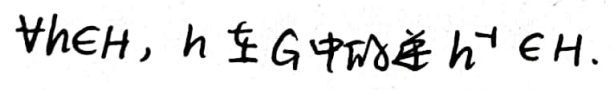 ∀h∈H, h 在 G 中的逆 h⁻¹ ∈ H.